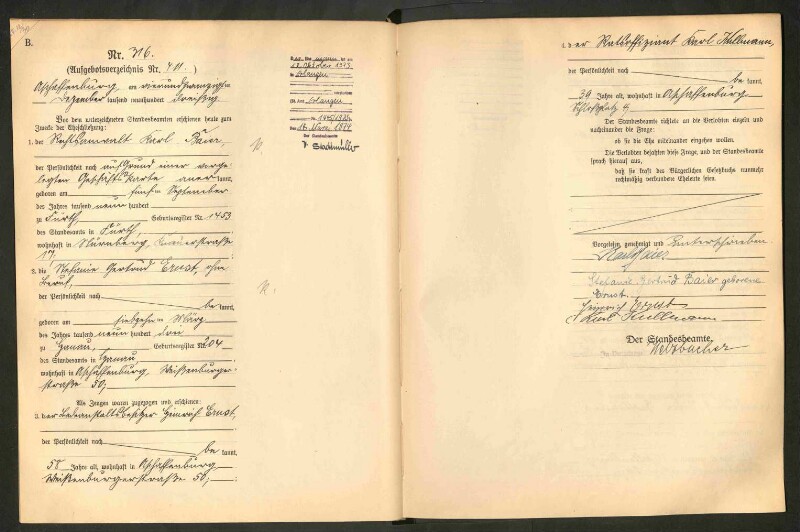 B.
Nr. 316.
(Aufgebotsverzeichnis Nr. 411.)
Aschaffenburg, am vierundzwanzigsten
Dezember tausend neunhundert dreißig
Vor dem unterzeichneten Standesbeamten erschienen heute zum
Zwecke der Eheschließung:
1. der Rechtsanwalt Karl Baier,
der Persönlichkeit nach auf Grund einer vorge-
legten Geschäftskarte anerkannt,
geboren am fünften September
des Jahres tausend neunhundert
zu Fürth, Geburtsregister Nr. 1453
des Standesamts in Fürth,
wohnhaft in Nürnberg,
17,
2. die Stefanie Gertrud Ernst, ohne
Beruf,
der Persönlichkeit nach
bekannt,
geboren am siebzehnten März
des Jahres tausend neunhundert drei
zu Hanau, Geburtsregister Nr. 204
des Standesamts in Hanau,
wohnhaft in Aschaffenburg, Weißenburger-
straße 50;
Als Zeugen waren zugezogen und erschienen:
3. der Badeanstaltsbesitzer Heinrich Ernst,
der Persönlichkeit nach
bekannt,
58 Jahre alt, wohnhaft in Aschaffenburg
Weißenburgerstraße 50;
in Erlangen
St. Amt Erlangen
Der Standesbeamte
4. der Ratsoffiziant Karl Kullmann,
der Persönlichkeit nach
bekannt,
39 Jahre alt, wohnhaft in Aschaffenburg
Schloßplatz 4
Der Standesbeamte richtete an die Verlobten einzeln und
nacheinander die Frage:
ob sie die Ehe miteinander eingehen wollen.
Die Verlobten bejahten diese Frage, und der Standesbeamte
sprach hierauf aus,
daß sie kraft des Bürgerlichen Gesetzbuchs nunmehr
rechtmäßig verbundene Eheleute seien.
Vorgelesen, genehmigt und unterschrieben.
Karl Baier
Stefanie Gertrud Baier geborene
Ernst.
Heinrich Ernst
Karl Kullmann
Der Standesbeamte.
In Vertretung: Welzbacher